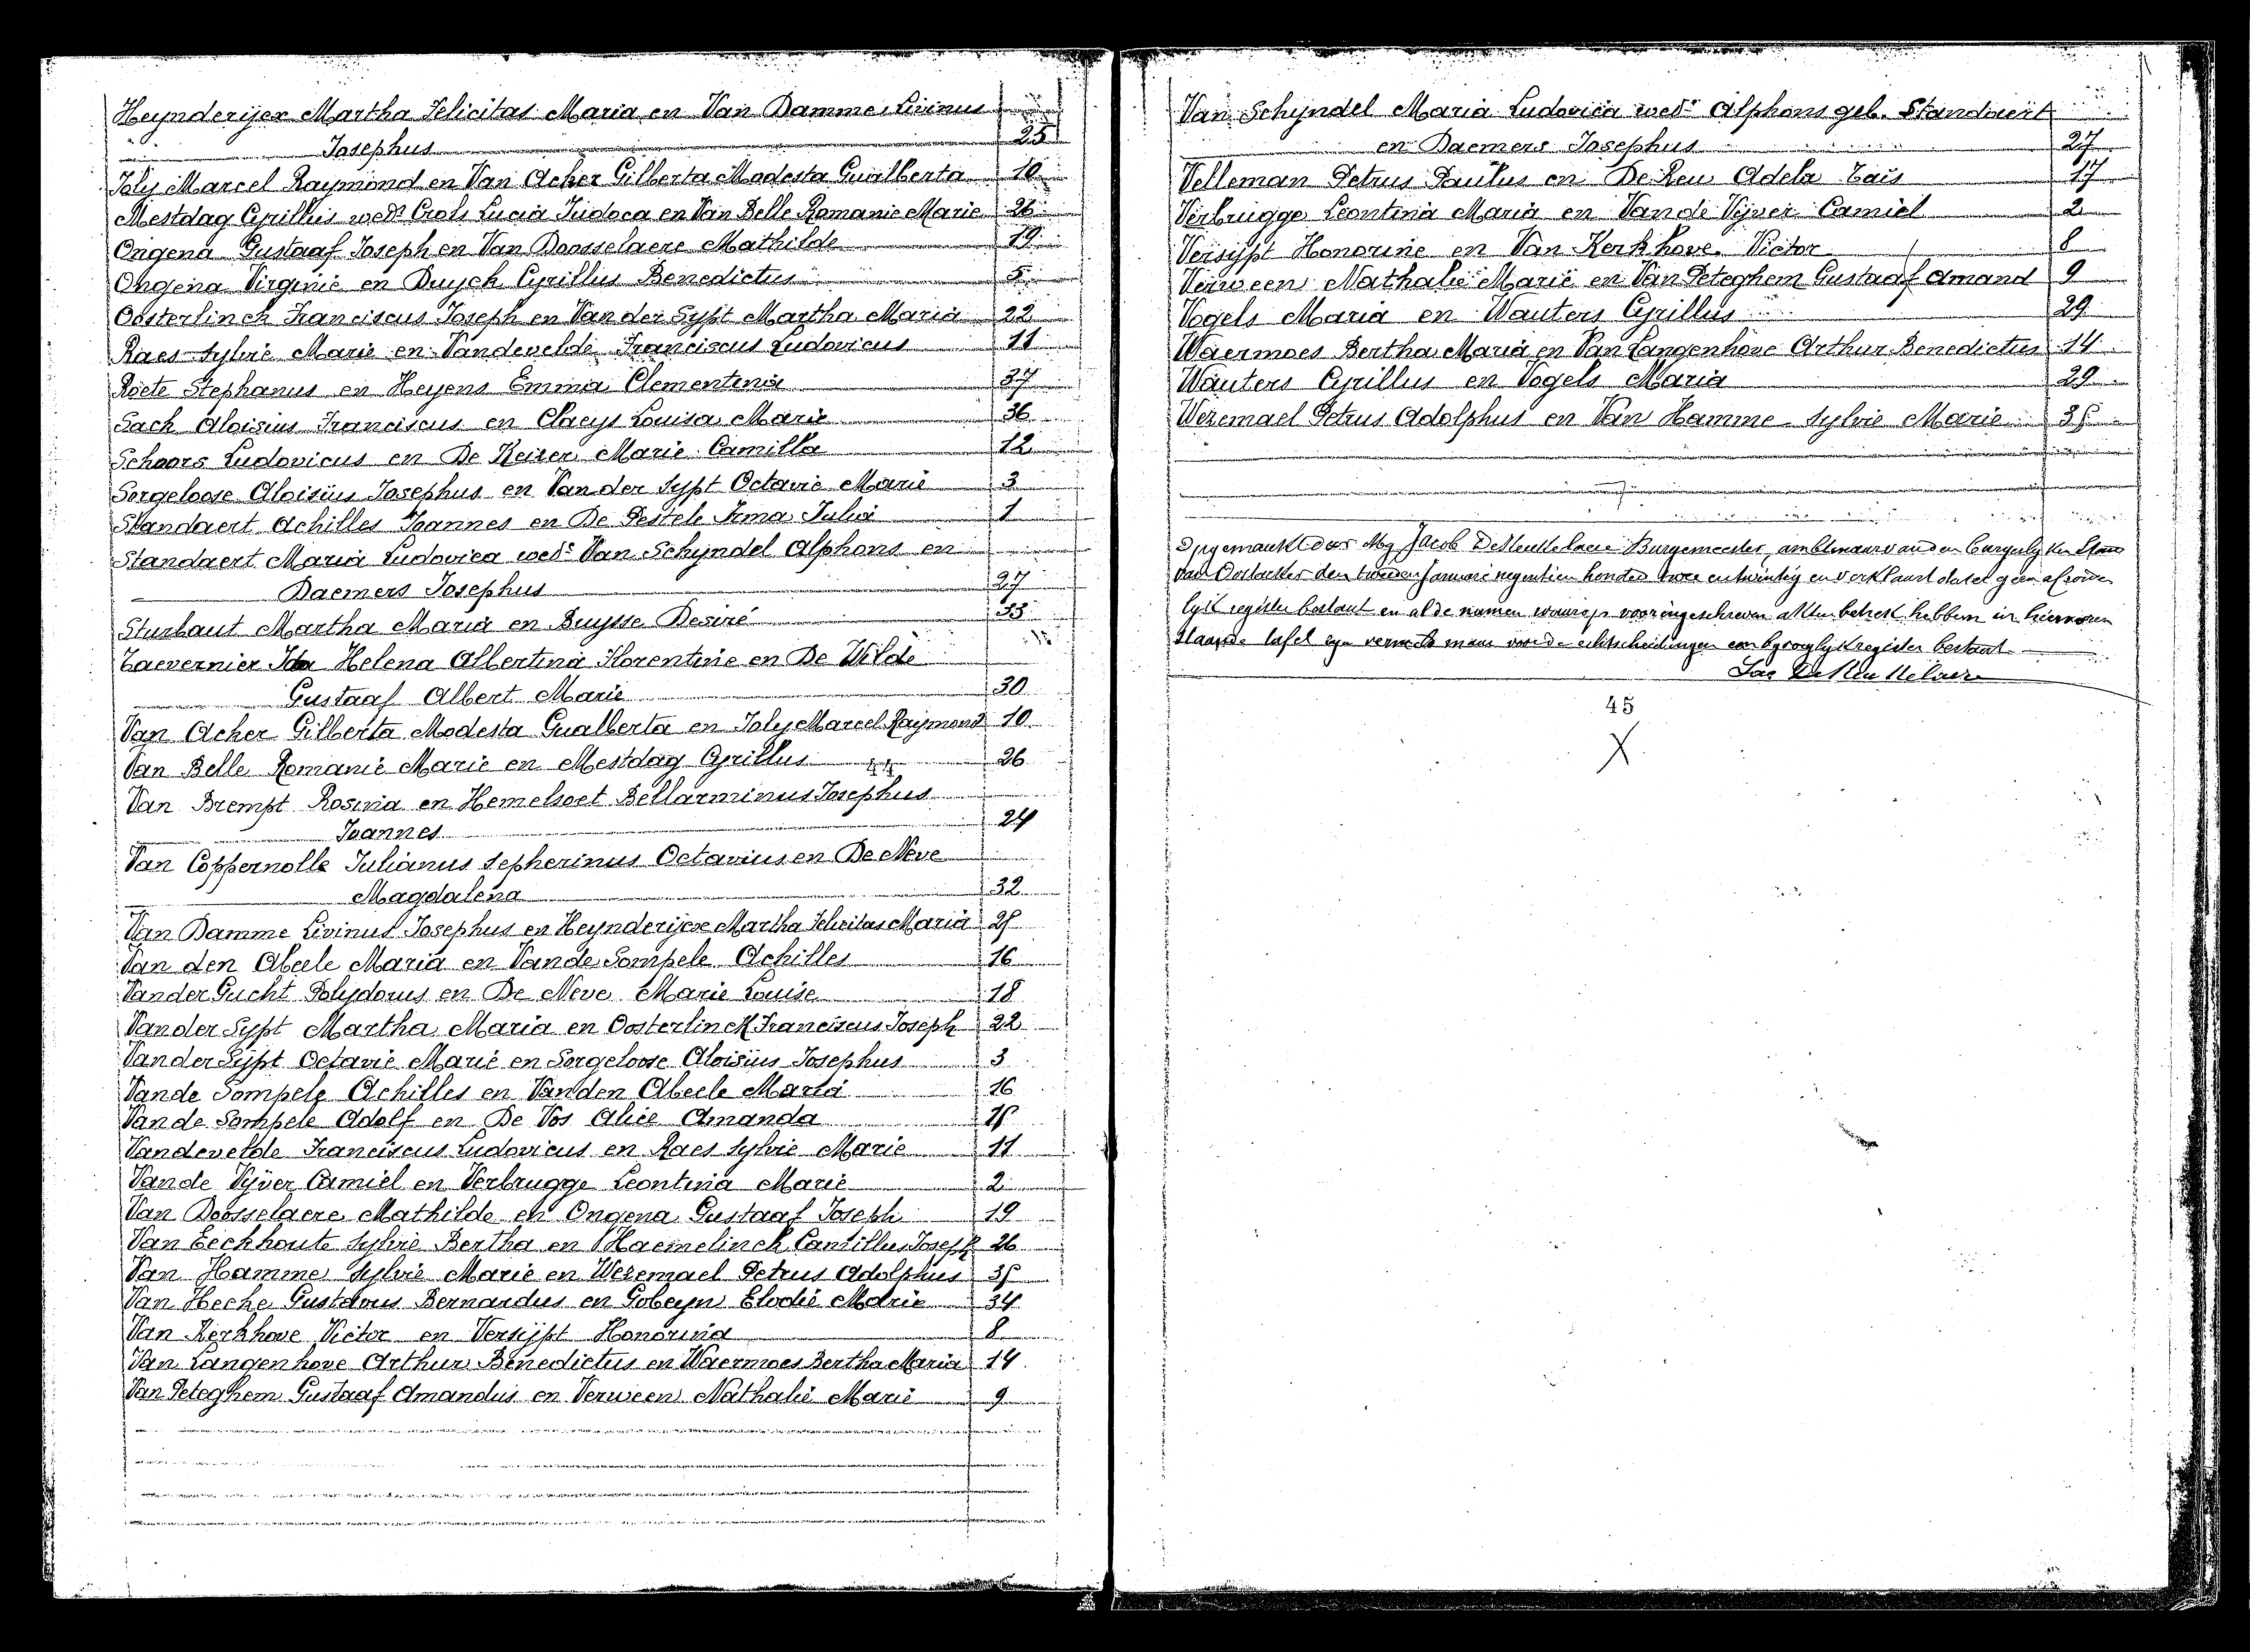 Heynderijcx Martha Felicitas Maria en Van Damme Livinus
Josephus 25
Joly Marcel Raymond en Van Acker Gilberta Modesta Gualberta 10
Mestdag Cyrillus wedr Crols Lucia Judoca en Van Belle Romanie Marie 26
Ongena Gustaaf Joseph en Van Doosselaere Mathilde 19
Ongena Virginie en Buysch Cyrillus Benedictus 5
Oosterlinck Franciscus Joseph en Van der Sypt Martha Maria 22
Raes Sylvie Marie en Vandevelde Franciscus Ludovicus 11
Roete Stephanus en Heyens Emma Clementina 37
Sack Aloisius Franciscus en Claeys Louisa Marie 36
Schoors Ludovicus en De Keizer Marie Camilla 12
Sorgeloose Aloisius Josephus en Van der Sypt Octavie Marie 3
Standaert Achilles Joannes en De Pestele Irma Julia 1
Standaert Maria Ludovica wede Van Schyndel Alphons en
Daemers Josephus 27
Sturbaut Martha Maria en Buysse Desiré 33
Taevernier Ida Helena Albertina Florentine en De Wilde
Gustaaf Albert Marie 30
Van Acker Gilberta Modesta Gualberta en Joly Marcel Raymond 10
Van Belle Romanie Marie en Mestdag Cyrillus 26
Van Brempt Rosina en Hemelsoet Bellarminus Josephus
Joannes 24
Van Coppernolle Julianus Sepherinus Octavius en De Neve
Magdalena 32
Van Damme Livinus Josephus en Heynderijcx Martha Felicitas Maria 25
Van den Abeele Maria en Vande Sompele Achilles 16
Vander Gucht Polydorus en De Neve Marie Louise 18
Vander Sypt Martha Maria en Oosterlinck Franciscus Joseph 22
Vander Sypt Octavie Marie en Sorgeloose Aloisius Josephus 3
Vande Sompele Achilles en Vanden Abeele Maria 16
Vande Sompele Adolf en De Vos Alice Amanda
Vandevelde Franciscus Ludovicus en Raes Sylvie Marie 11
Vande Vyver Camiel en Verbrugge Leontina Marie 2
Van Doosselaere Mathilde en Ongena Gustaaf Joseph 19
Van Eeckhoute Sylvie Bertha en Haemelinck Camillus Joseph 26
Van Hamme Sylvie Marie en Wezemael Petrus Adolphus 35
Van Hecke Gustavus Bernardus en Gobeyn Elodie Marie 34
Van Kerkhove Victor en Versypt Honorina 8
Van Langenhove Arthur Benedictus en Waermoes Bertha Maria 14
Van Peteghem Gustaaf Amandus en Verween Nathalie Marie 9
Van Schyndel Maria Ludovica wede Alphons geb. Standaert
en Daemers Josephus 27
Velleman Petrus Paulus en De Reu Adela Taïs 17
Verbrugge Leontina Maria en Van de Vyver Camiel 2
Versypt Honorine en Van Kerkhove Victor 8
Verween Nathalie Marie en Van Peteghem Gustaaf Amand 9
Vogels Maria en Wauters Cyrillus 29
Waermoes Bertha Maria en Van Langenhove Arthur Benedictus 14
Wauters Cyrillus en Vogels Maria 29
Wezemael Petrus Adolphus en Van Hamme Sylvie Marie 35
Opgemaakt door Mij Jacob De Burgemeester, ambtenaar van den burgerlyken Stand
van Oostacker den tweeden Januari negentien honderd twee en twintig en verklaard dat er geen afzonder
lyk register bestaat en al de namen waarop vooringeschreven akten betrek hebben in hiervoren
staande tafel zyn vermeld maar voor de echtscheidingen een byvoeglyk register bestaat
45
X